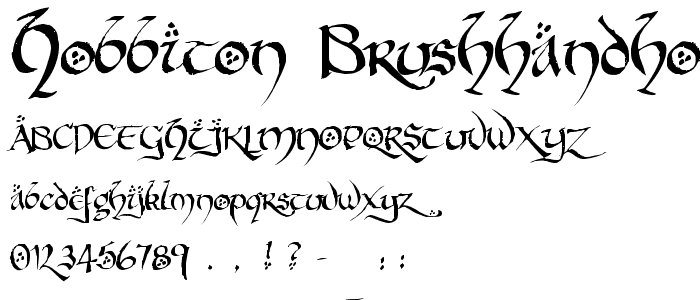 Hobbiton Brushhandho
ABCDEFGHIJKLMNOPQRSTUVWXYZ
abcdefghijklmnopqrstuvwxyz
0123456789 . , ! ? - : :